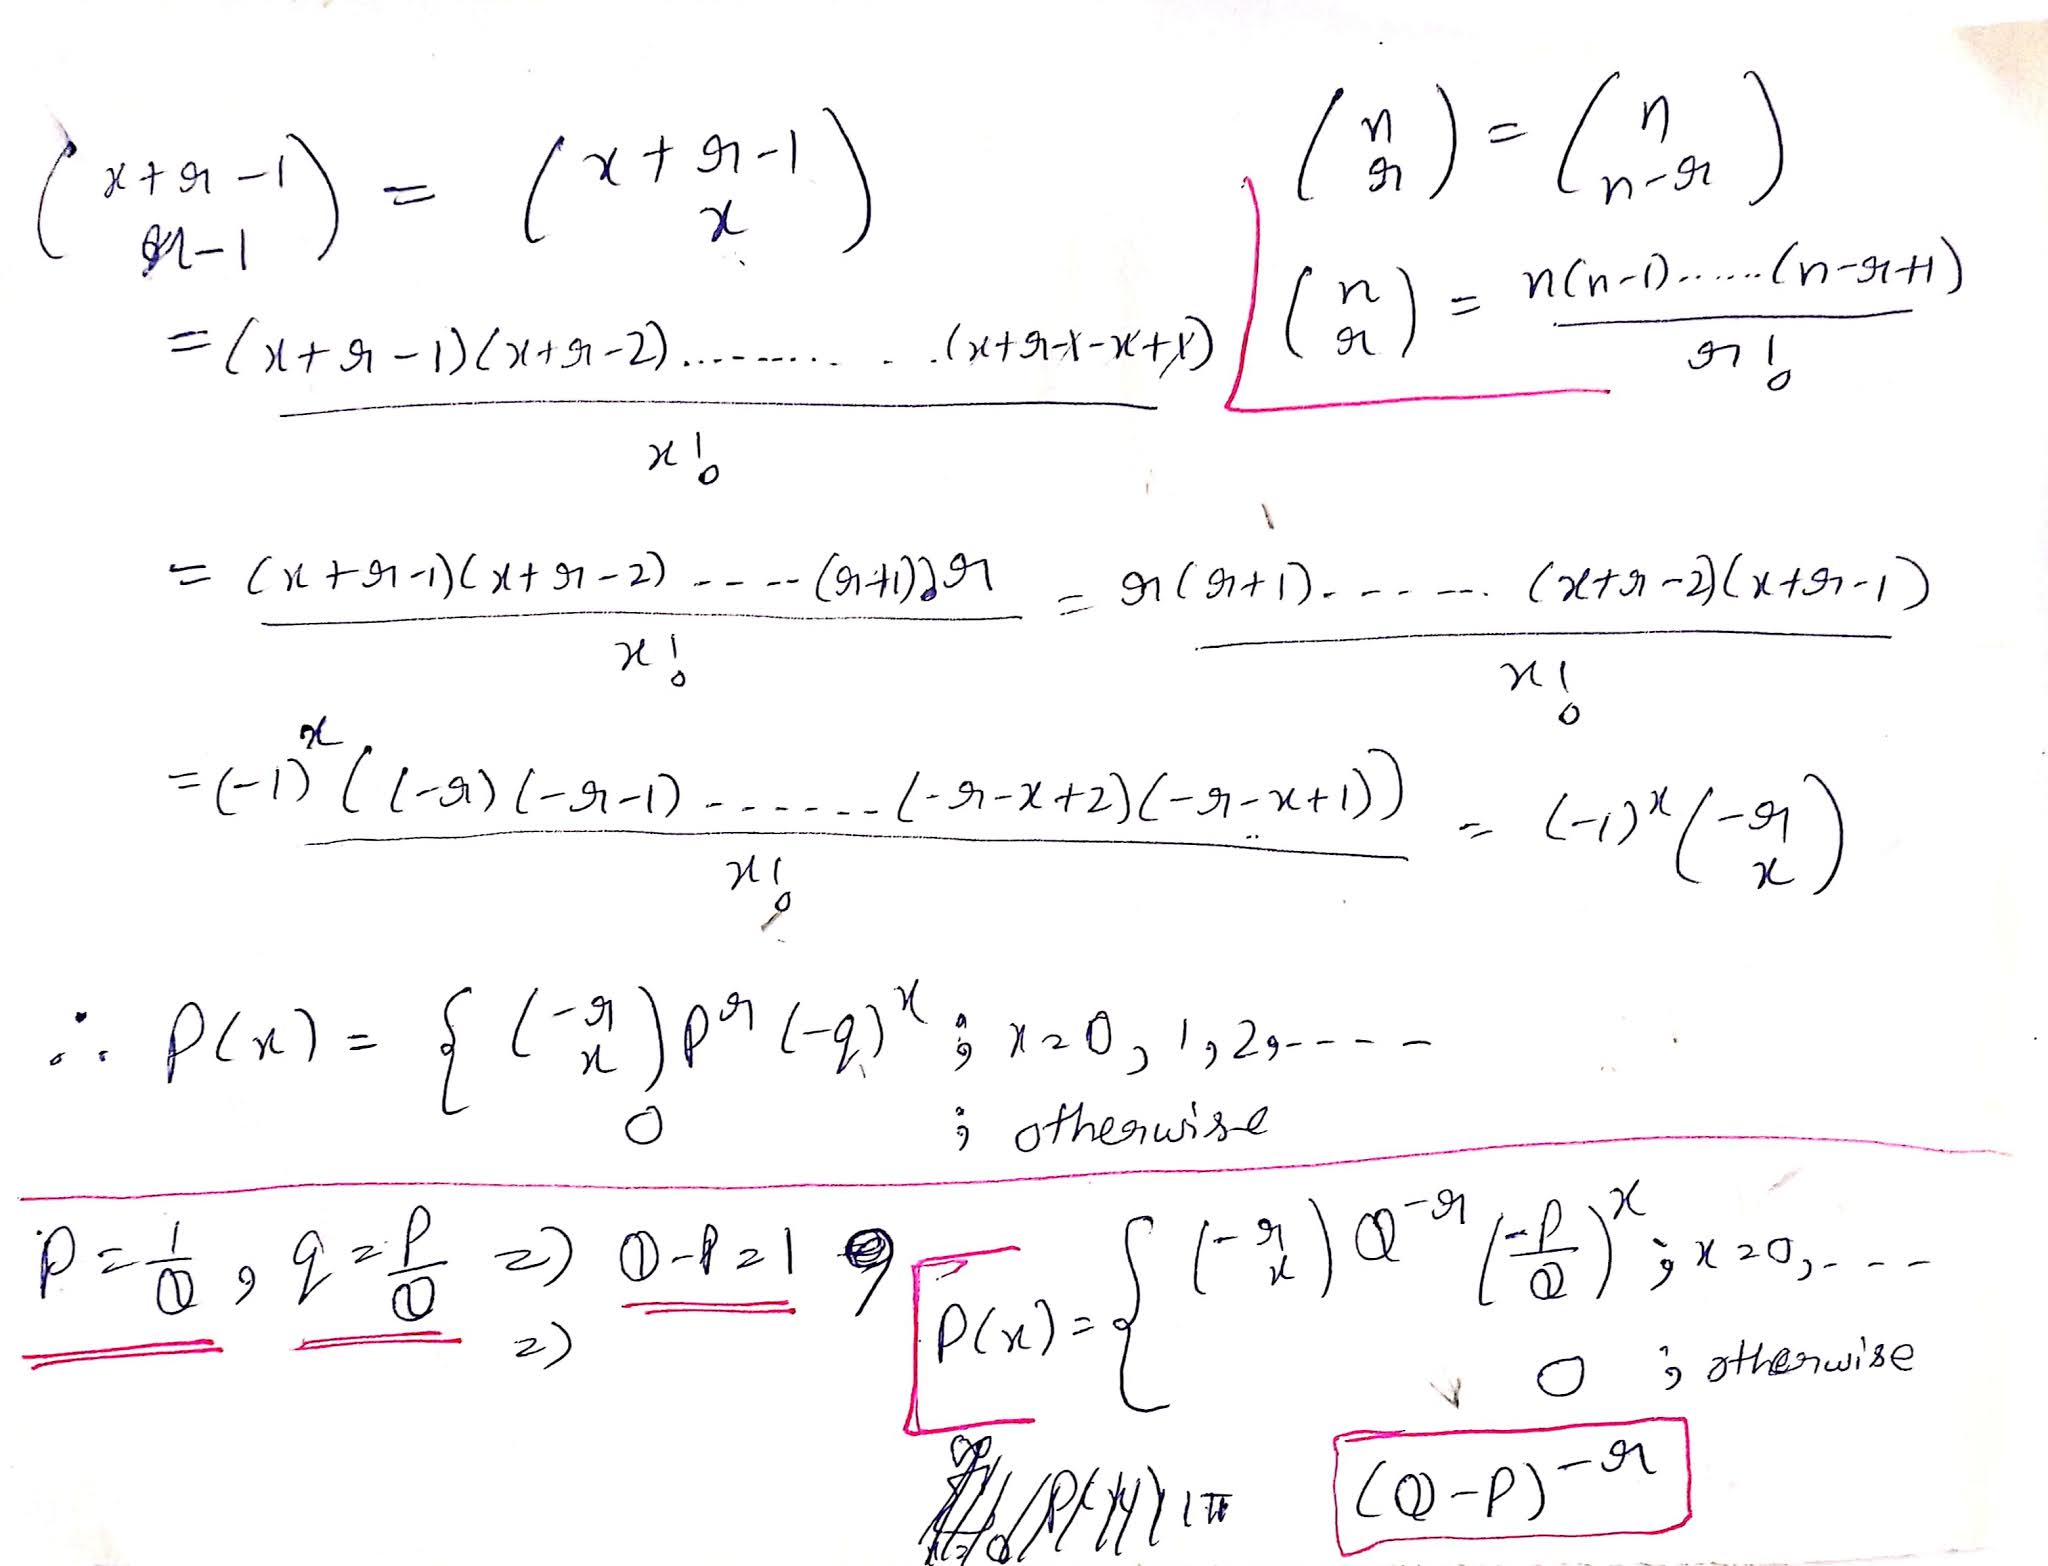 \binom{x+r-1}{r-1} = \binom{x+r-1}{x}
\binom{n}{r} = \binom{n}{n-r}
\binom{n}{r} = \frac{n(n-1)......(n-r+1)}{r!}
= \frac{(x+r-1)(x+r-2)...........(x+r-1-x+1)}{x!}
= \frac{(x+r-1)(x+r-2)----(r+1)r}{x!} = \frac{r(r+1)......(x+r-2)(x+r-1)}{x!}
= \frac{(-1)^x((-r)(-r-1)......(-r-x+2)(-r-x+1))}{x!} = (-1)^x \binom{-r}{x}
∴ P(x) = { \binom{-r}{x} p^r (-q)^x ; x=0, 1, 2, ----
0 ; otherwise
P = \frac{1}{Q}, q = \frac{P}{Q} => Q-P=1
=>
P(x) = { \binom{-r}{x} Q^{-r} (\frac{-P}{Q})^x ; x=0, ---
0 ; otherwise
(Q-P)^{-r}